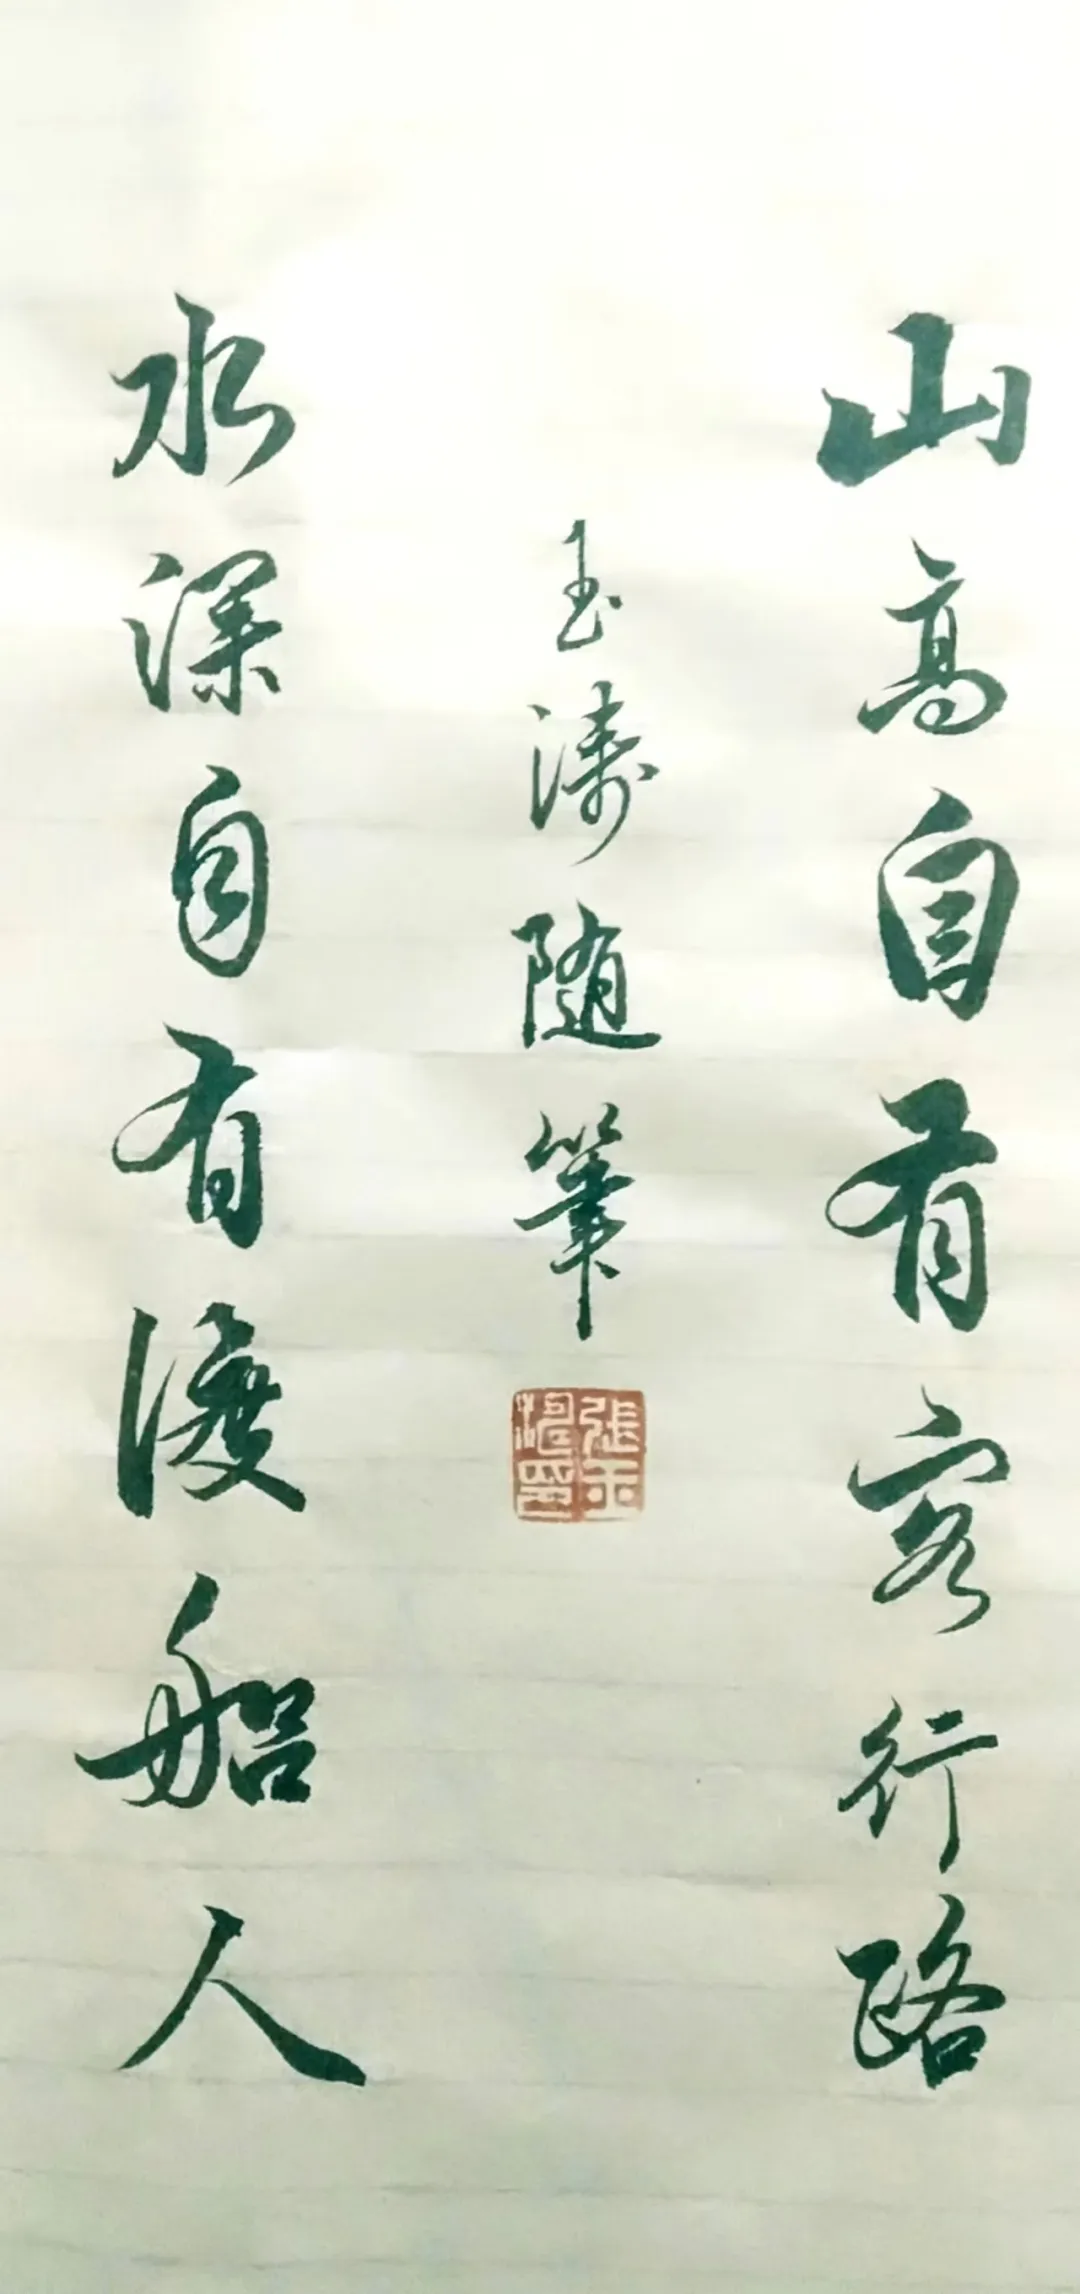 山高自有客行路
玉涛随筆
張玉印
水深自有渡船人